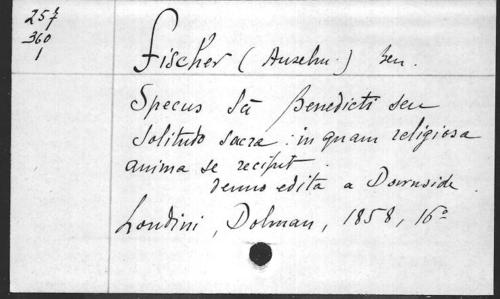 257
360
1
Fischer (Anselm.) ben.
Specus Sti Benedicti seu
Solitudo sacra: in quam religiosa
anima se recipit.
denuo edita a Downside.
Londini, Dolman, 1858, 16º